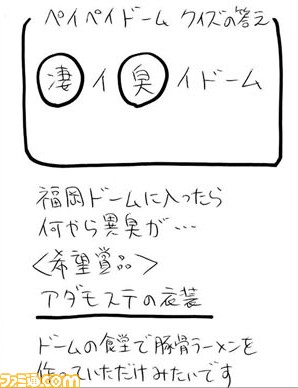 ペイペイドーム クイズの答え
凄イ臭イドーム
福岡ドームに入ったら
何やら異臭が…
<希望賞品>
アダモステの衣装
ドームの食堂で豚骨ラーメンを
作っていただけみたいです
ファミ通.com